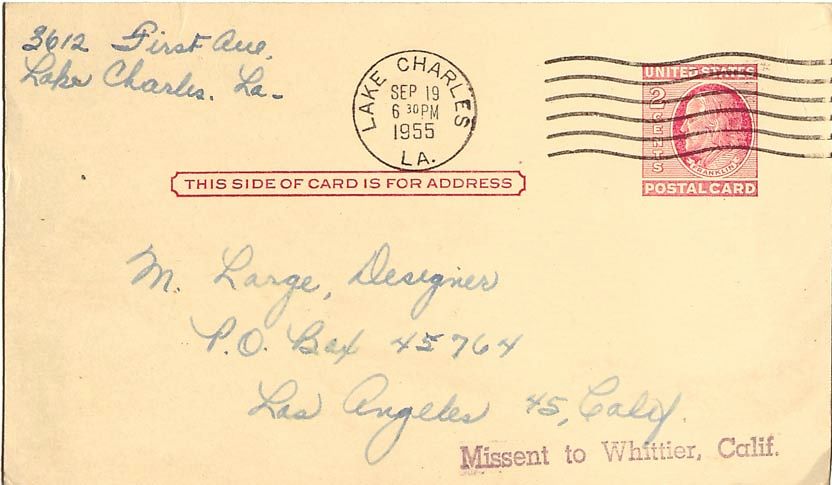 3612 First Ave.
Lake Charles. La-
LAKE CHARLES
SEP 19
6 30 PM
1955
LA.
UNITED STATES
2 CENTS
FRANKLIN
POSTAL CARD
THIS SIDE OF CARD IS FOR ADDRESS
M. Large, Designer
P.O. Box 45764
Los Angeles 45, Calif.
Missent to Whittier, Calif.